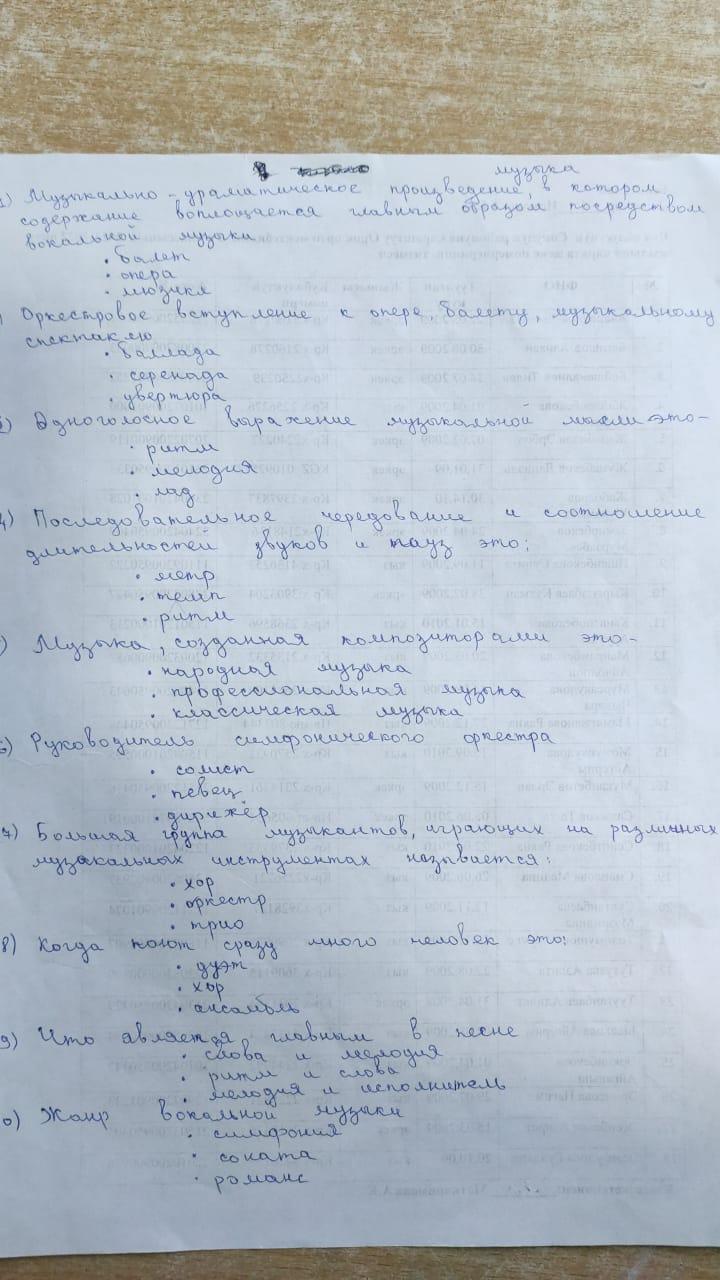 музыка
1) Музыкально-драматическое произведение, в котором
содержание воплощается главным образом посредством
вокальной музыки
• балет
• опера
• мюзикл
Оркестровое вступление к опере, балету, музыкальному
спектаклю
• баллада
• серенада
• увертюра
3) Одноголосное выражение музыкальной мысли это-
• ритм
• мелодия
• лад
4) Последовательное чередование и соотношение
длительностей звуков и пауз это:
• метр
• темп
• ритм
) Музыка, созданная композиторами это-
• народная музыка
• профессиональная музыка
• классическая музыка
6) Руководитель симфонического оркестра
• солист
• певец
• дирижёр
7) Большая группа музыкантов, играющих на различных
музыкальных инструментах называется:
• хор
• оркестр
• трио
8) Когда поют сразу много человек это:
• дуэт
• хор
• ансамбль
9) Что является главным в песне
• слова и мелодия
• ритм и слова
• мелодия и исполнитель
0) Жанр вокальной музыки
• симфония
• соната
• романс